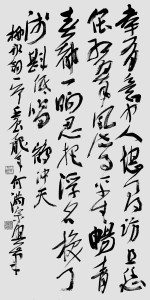 幸有意中人堪寻访且恁
偎红翠风流事平生畅青
春都一晌忍把浮名换了
浅斟低唱 鹤冲天
柳永词一 何满宗